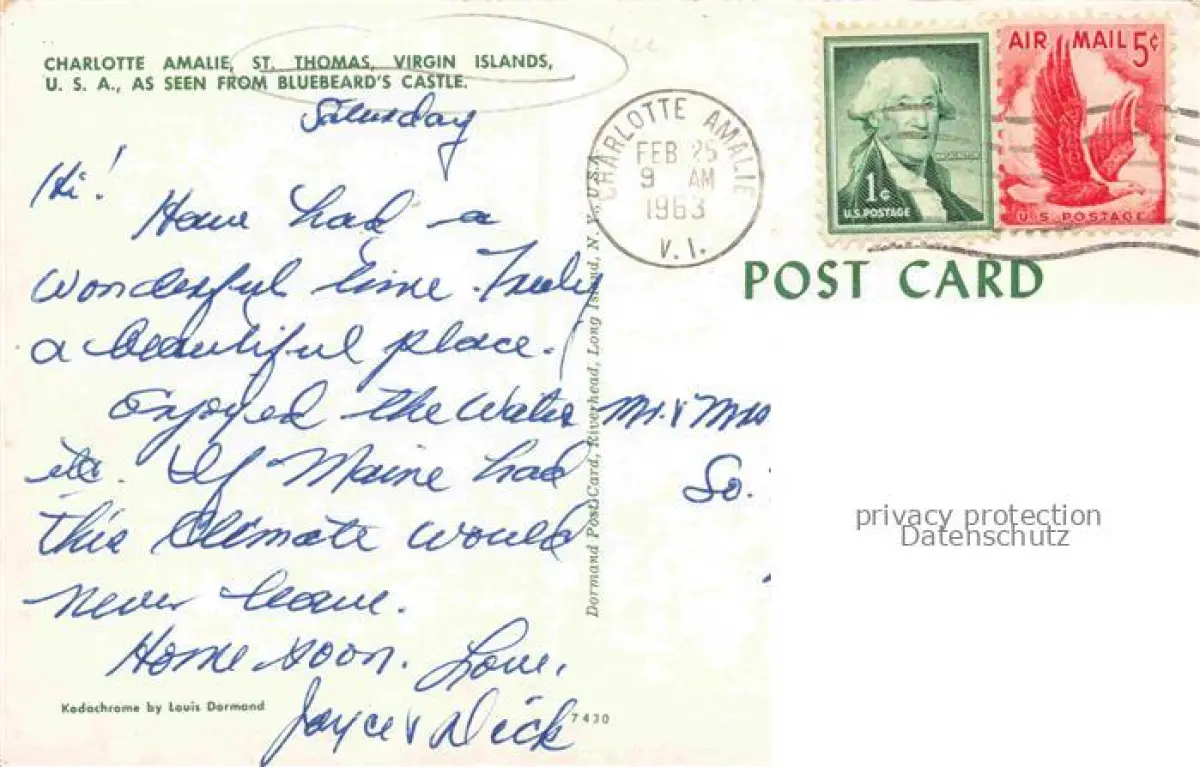 CHARLOTTE AMALIE, ST. THOMAS, VIRGIN ISLANDS,
U. S. A., AS SEEN FROM BLUEBEARD'S CASTLE.
Saturday
Hi!
Have had a
wonderful time. Truly
a beautiful place.
Enjoyed the water
etc. If Maine had
this climate would
never leave.
Home soon. Love,
Joyce & Dick
Kodachrome by Louis Dormand
7430
Dormand Post Card, Riverhead, Long Island, N. Y., U.S.A.
CHARLOTTE AMALIE
FEB 25
9 AM
1963
V. I.
1¢
U.S. POSTAGE
AIR MAIL 5¢
U.S. POSTAGE
POST CARD
Mr. & Mrs
So.
privacy protection
Datenschutz